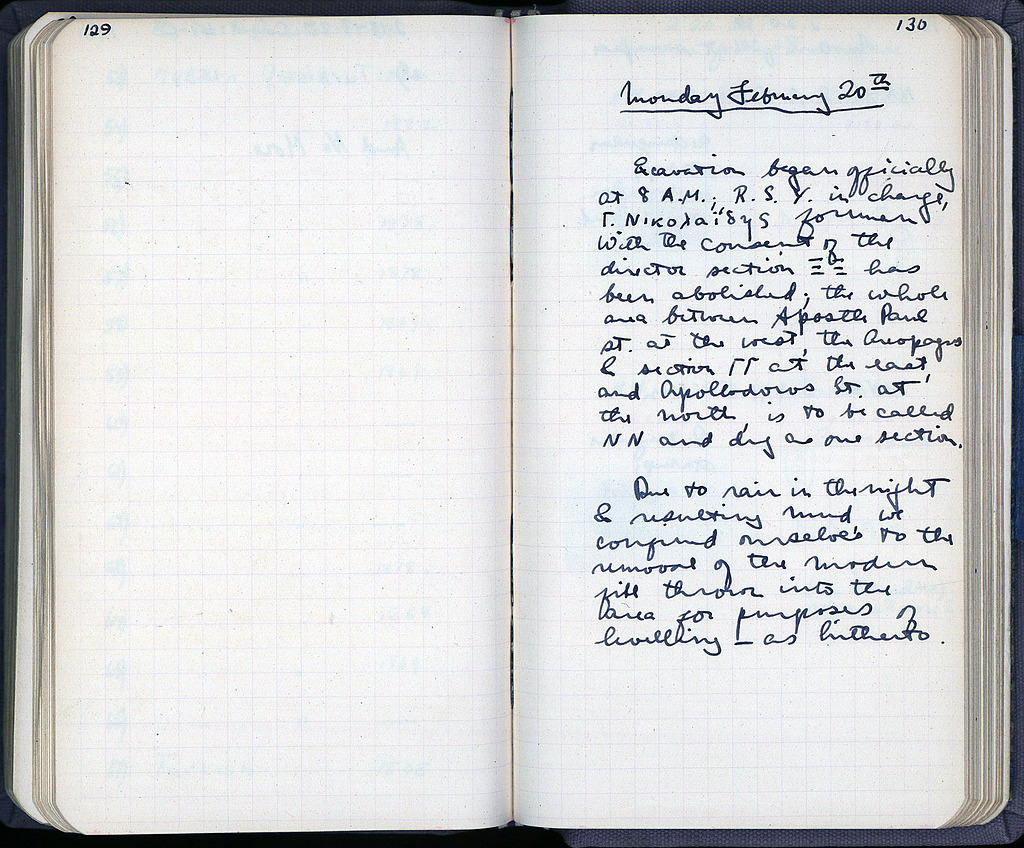 129
130
Monday February 20th
Excavation began officially
at 8 A.M.; R. S. Y. in charge,
Γ. Νικολαΐδης foreman
With the consent of the
director section has
been abolished; the whole
area between Apostle Paul
st. at the west, the Areopagus
& section ΓΓ at the east,
and Apollodoros St. at
the north, is to be called
NN and dug as one section.
Due to rain in the night
& resulting mud we
confined ourselves to the
removal of the modern
fill thrown into the
area for purposes of
levelling – as hitherto.